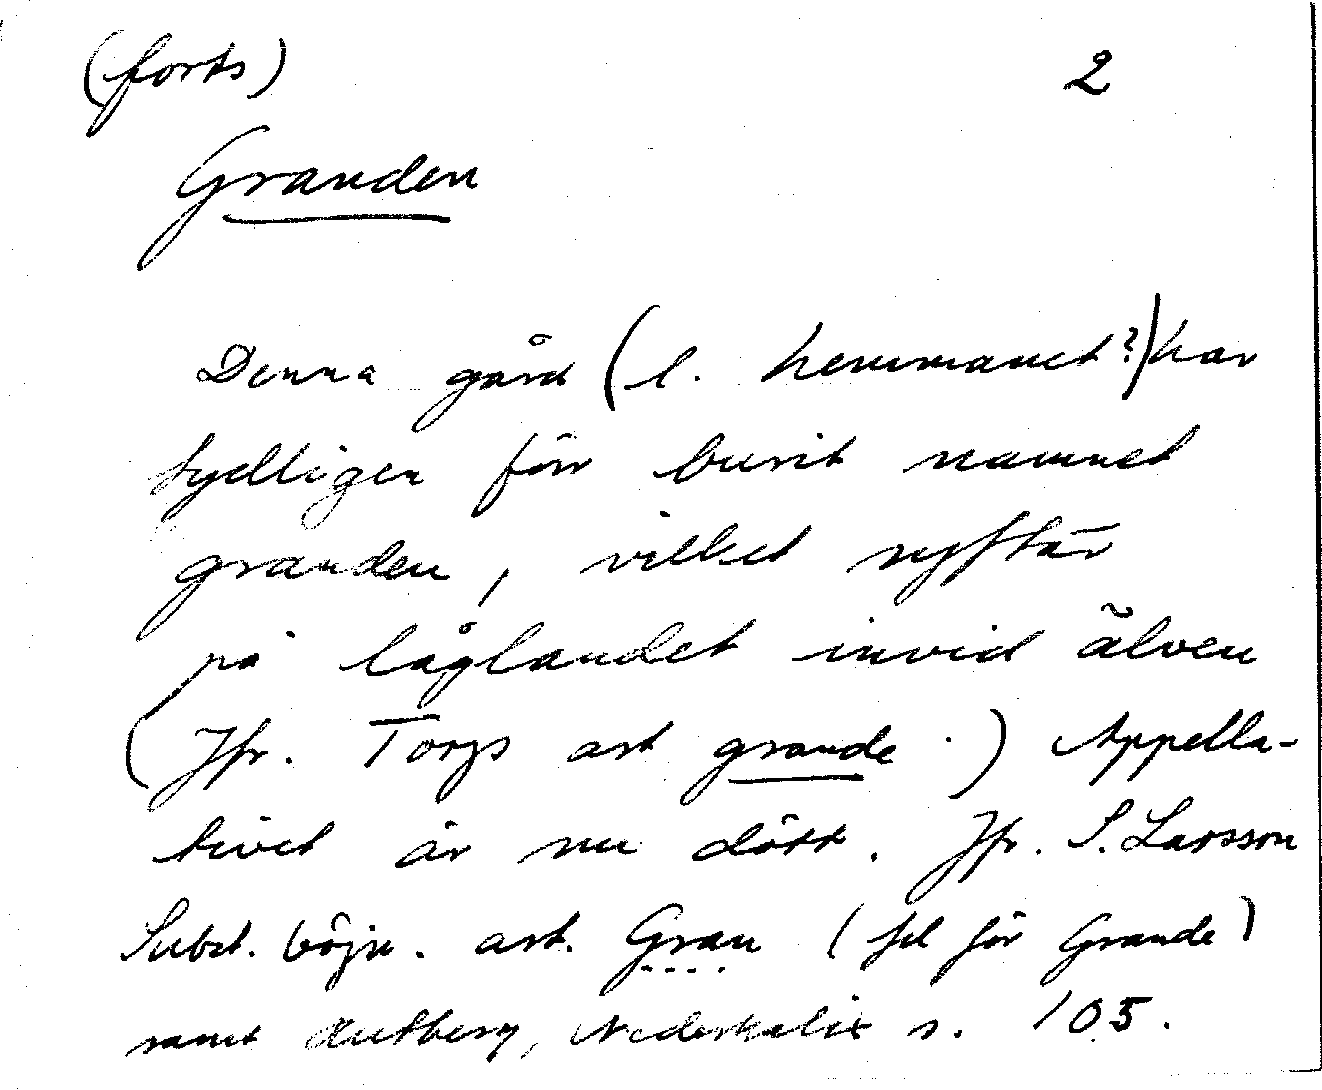 (forts) 2
Granden
Denna gård (l. hemmanet?) har
tydligen förr burit namnet
granden, vilket syftar
på låglandet invid älven
(Jfr. Torps art grande.) Appella-
tivet är nu dött. Jfr. S. Larsson
Subst. böjn. art. Gran (fel för Grande)
samt Rutberg, Nederkalix s. 105.